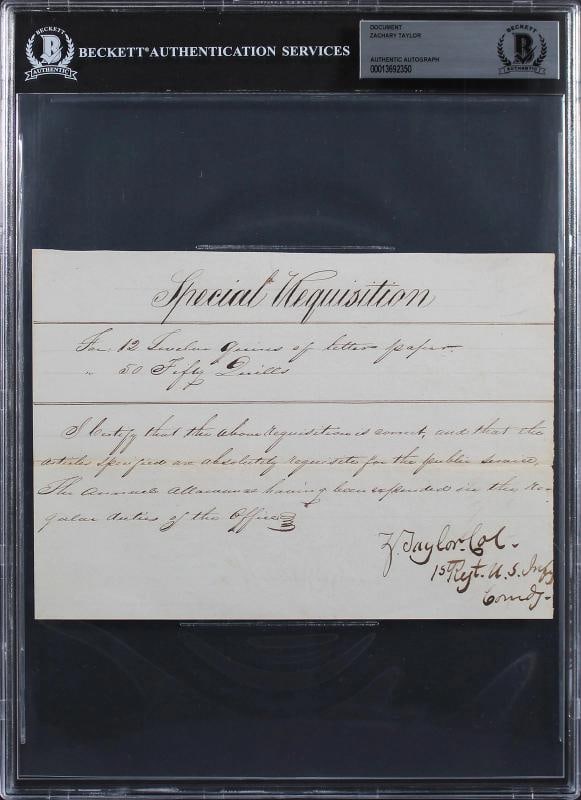 BECKETT
B
AUTHENTIC
BECKETT® AUTHENTICATION SERVICES
DOCUMENT
ZACHARY TAYLOR
AUTHENTIC AUTOGRAPH
00013692350
BECKETT
B
AUTHENTIC
Special Requisition
For 12 Twelve quires of letter paper.
" 50 Fifty Quills
I Certify that the above requisition is correct, and that the
articles specified are absolutely requisite for the public service,
The annual allowance having been expended in the re-
gular duties of the Office
Z. Taylor Col.
1st Regt. U. S. Infy
Comdg.